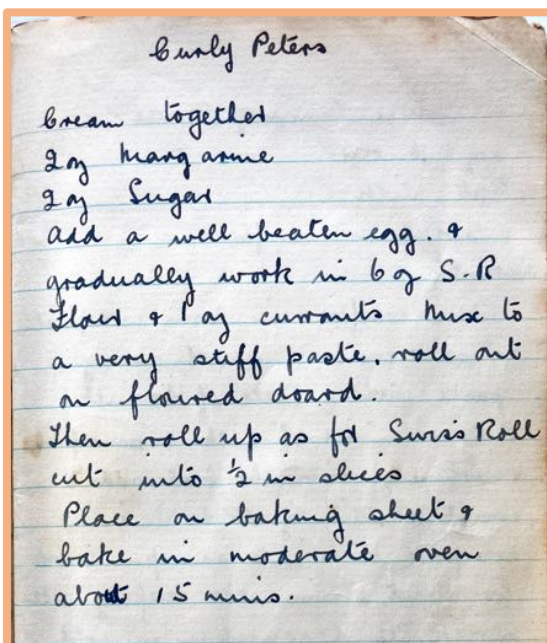 Curly Peters
Cream together
2 oz Margarine
2 oz Sugar
add a well beaten egg. &
gradually work in 6 oz S.R
Flour & 1 oz currants Mix to
a very stiff paste. roll out
on floured doard.
Then roll up as for Swiss Roll
cut into ½ in slices
Place on baking sheet &
bake in moderate oven
about 15 mins.